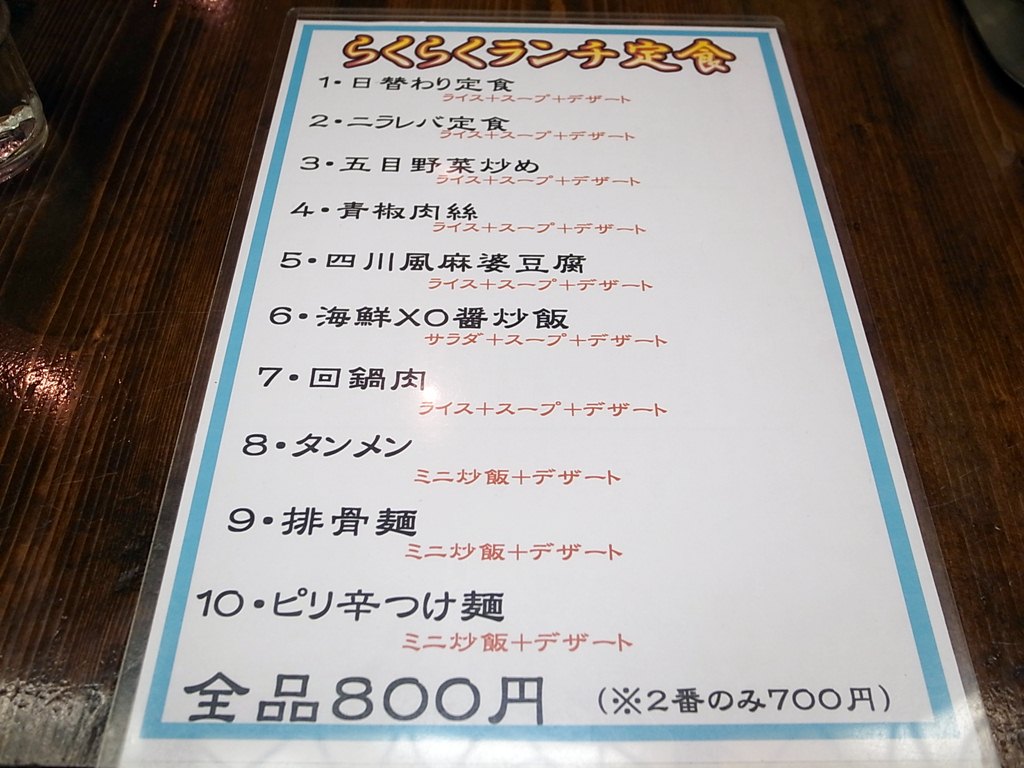 らくらくランチ定食
1・日替わり定食
ライス+スープ+デザート
2・ニラレバ定食
ライス+スープ+デザート
3・五目野菜炒め
ライス+スープ+デザート
4・青椒肉絲
ライス+スープ+デザート
5・四川風麻婆豆腐
ライス+スープ+デザート
6・海鮮XO醤炒飯
サラダ+スープ+デザート
7・回鍋肉
ライス+スープ+デザート
8・タンメン
ミニ炒飯+デザート
9・排骨麺
ミニ炒飯+デザート
10・ピリ辛つけ麺
ミニ炒飯+デザート
全品800円 (※2番のみ700円)